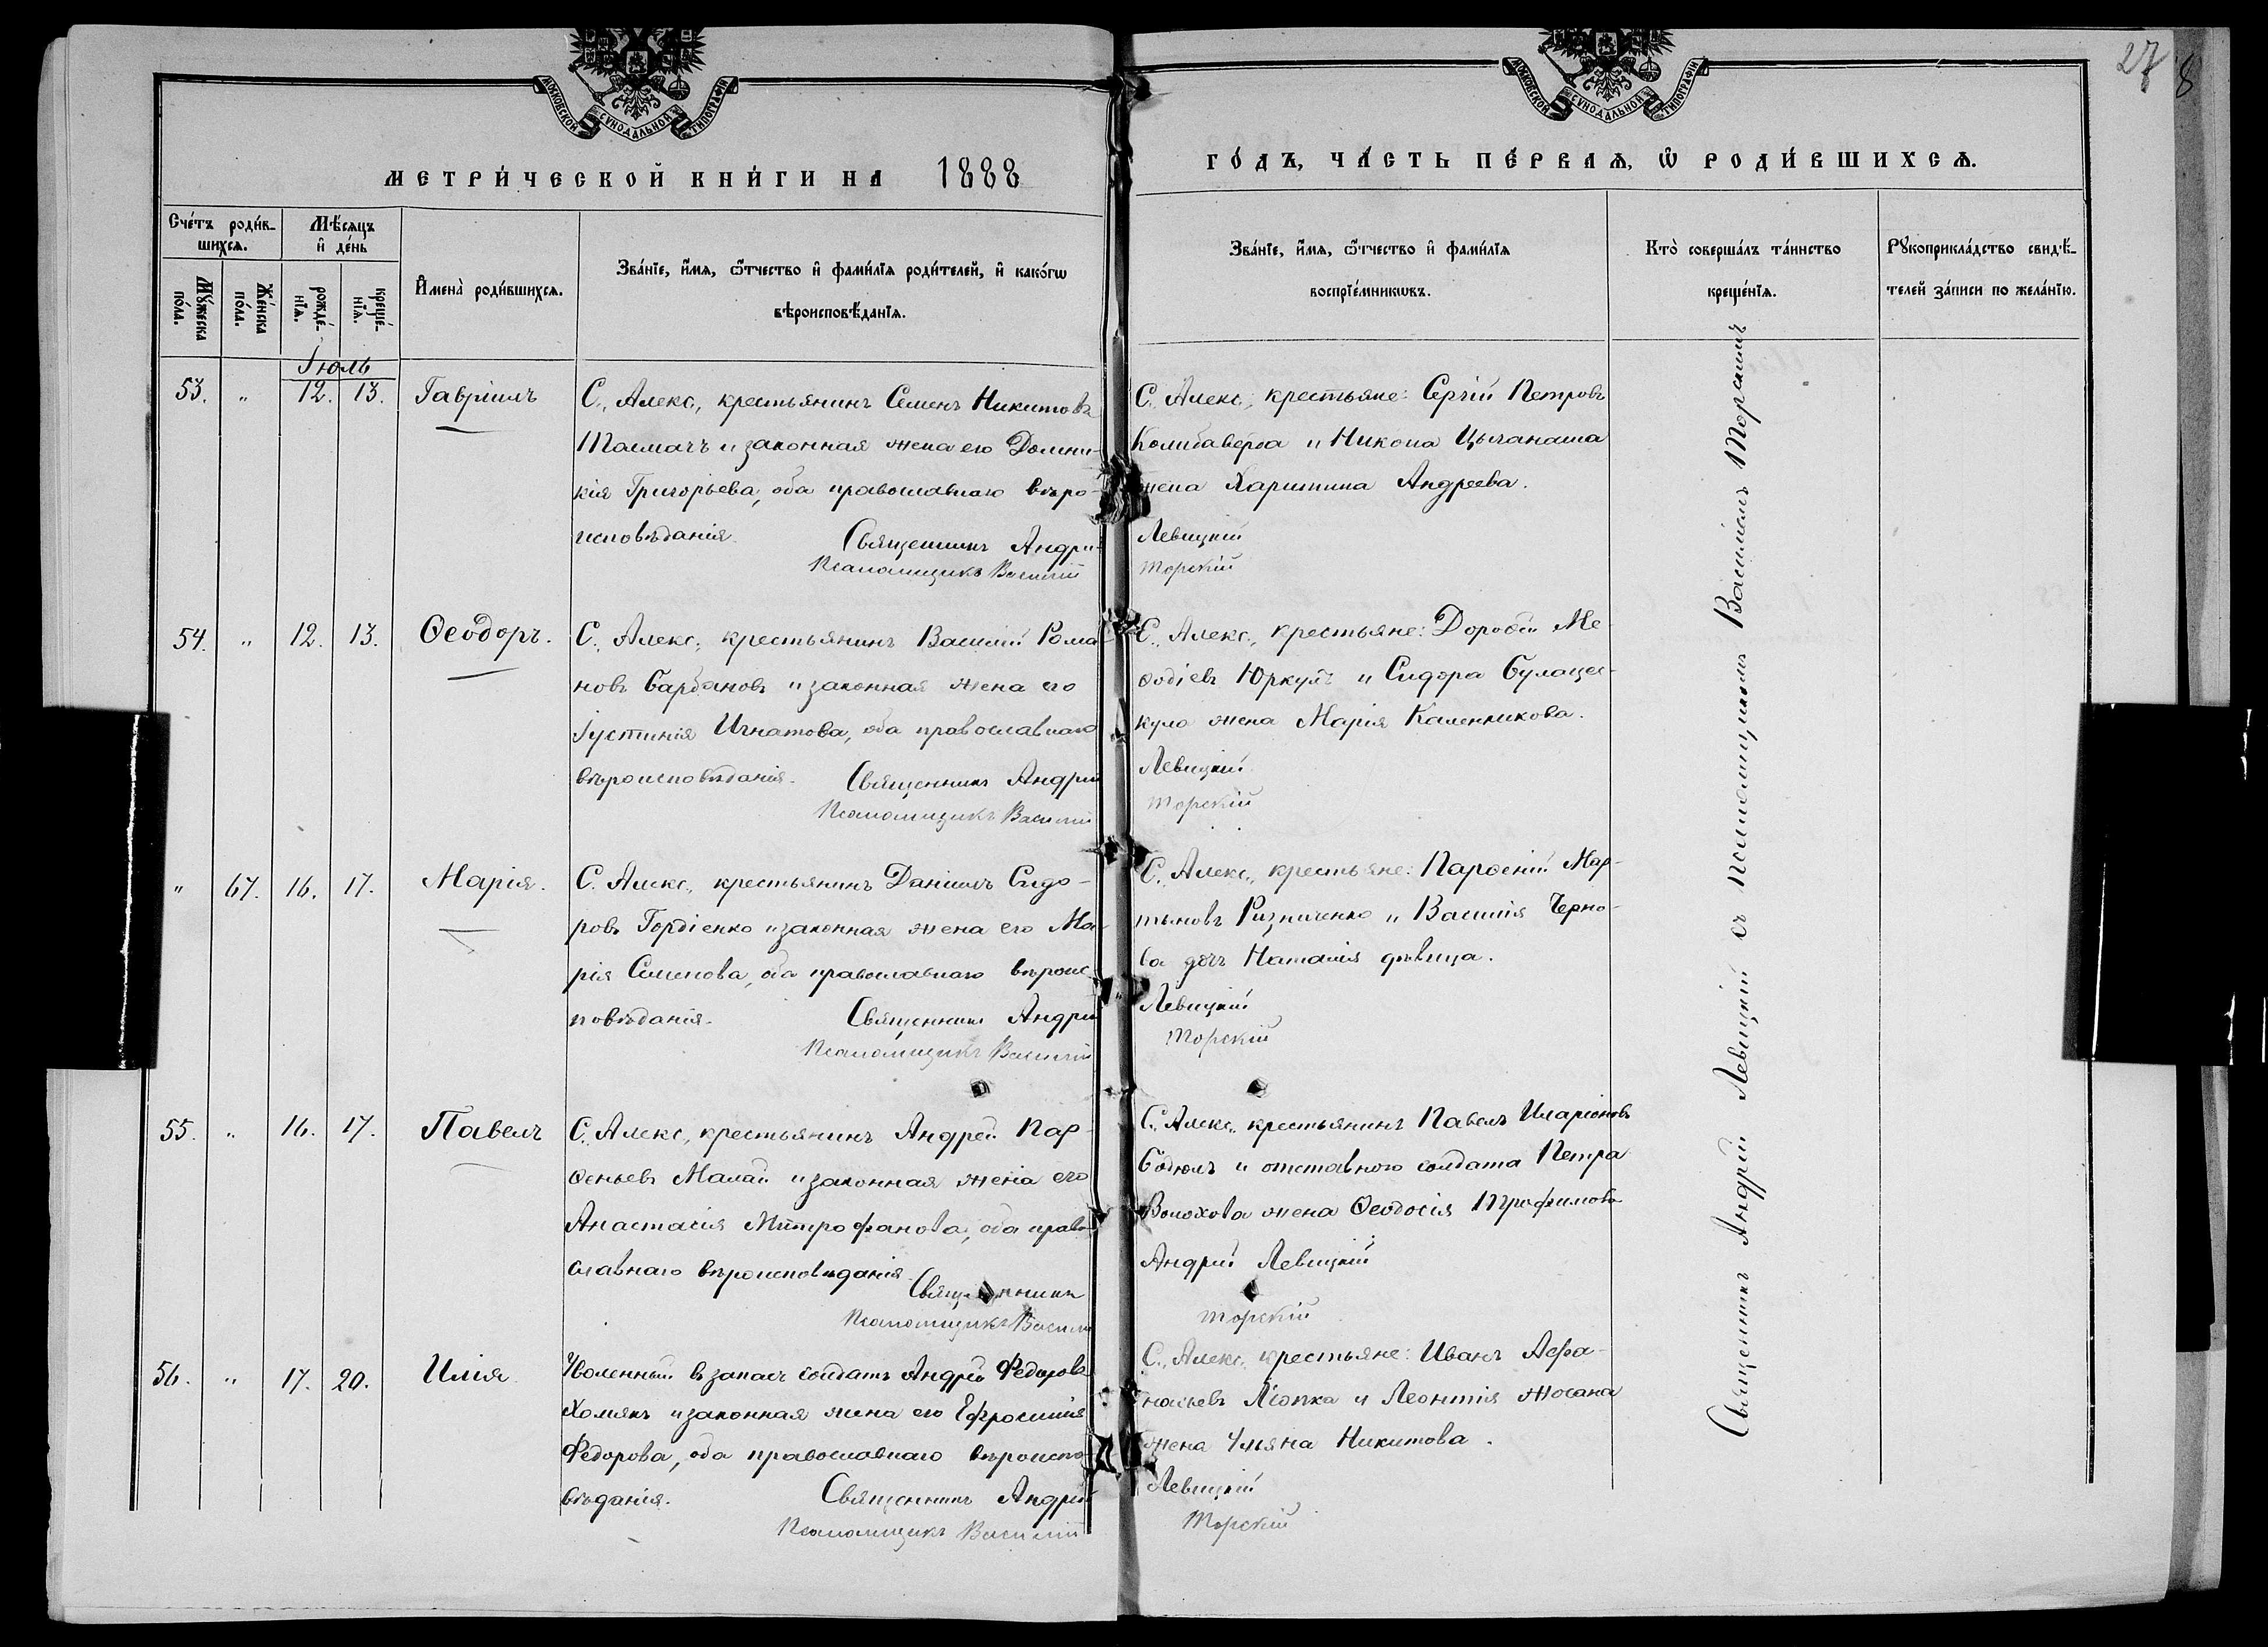 27
8
МОСКОВСКОЙ СѴНОДАЛЬНОЙ ТИПОГРАФІИ
МОСКОВСКОЙ СѴНОДАЛЬНОЙ ТИПОГРАФІИ
МЕТРИ́ЧЕСКОЙ КНИ́ГИ НА 1888
ГО́ДЪ, ЧА́СТЬ ПЕ́РВАѦ, Ѡ҆ РОДИ́ВШИХСѦ.
Сче́тъ роди́в-
шихсѧ.
Мѣ́сяцъ
и҆ де́нь
Мꙋ́жеска
по́ла.
Же́нска
по́ла.
рожде́-
нїѧ.
креще́-
нїѧ.
И҆мена̀ роди́вшихсѧ.
Зва́нїе, и҆́мѧ, ѻ҆́тчество и҆ фами́лїѧ роди́телей, и҆ како́гѡ
вѣроисповѣ́данїѧ.
Зва́нїе, и҆́мѧ, ѻ҆́тчество и҆ фами́лїѧ
воспрїе́мникѡвъ.
Кто̀ соверша́лъ та́инство
креще́нїѧ.
Рꙋкоприкла́дство свидѣ́-
телей за́писи по жела́нїю.
Іюль
53. " 12. 13. Гавріилъ
С., Алекс., крестьянинъ Семенъ Никитовъ
Толмачъ и законная жена его Домни-
кія Григорьева, оба православнаго вѣро-
исповѣданія. Священникъ Андрей
Псаломщикъ Василій
С., Алекс., крестьяне: Сергій Петровъ
и Никона Цыганаша
жена Харитина Андреева.
Левицкій
Торскій
54. " 12. 13. Ѳеодоръ.
С., Алекс., крестьянинъ Василій Рома-
новъ Барбановъ и законная жена его
Іустинія Игнатова, оба православнаго
вѣроисповѣданія. Священникъ Андрей
Псаломщикъ Василій
С., Алекс., крестьяне: Дороѳей Ме-
ѳодіевъ и Сидора Булацел-
кула жена Марія Каленикова.
Левицкій
Торскій
" 67. 16. 17. Марія.
С. Алекс., крестьянинъ Даніилъ Сидо-
ровъ Гордіенко и законная жена его Ма-
рія Семенова, оба православнаго вѣроис-
повѣданія. Священникъ Андрей
Псаломщикъ Василій
С., Алекс., крестьяне: Парѳеній Мар-
тыновъ Ризниченко и Василія Черно-
ва дочь Наталія дѣвица.
Левицкій
Торскій
55. " 16. 17. Павелъ
С. Алекс., крестьянинъ Андрей Пар-
ѳеньевъ Малай и законная жена его
Анастасія Митрофанова, оба право-
славнаго вѣроисповѣданія.
Священникъ
Псаломщикъ Василій
С., Алекс., крестьянинъ Павелъ Иларіоновъ
Бодюлъ и отставного солдата Петра
Волохова жена Ѳеодосія Трофимова
Андрей Левицкій
Торскій
56. " 17. 20. Илія
Уволенный в запасъ солдатъ Андрей Федоровъ
Хомякъ и законная жена его Ефросинія
Федорова, оба православнаго вѣроиспо-
вѣданія. Священникъ Андрей
Псаломщикъ Василій
С., Алекс., крестьяне: Иванъ Афа-
насьевъ и Леонтія
жена Ульяна Никитова.
Левицкій
Торскій
Священникъ Андрей Левицкій съ псаломщикомъ Василіемъ Торскимъ